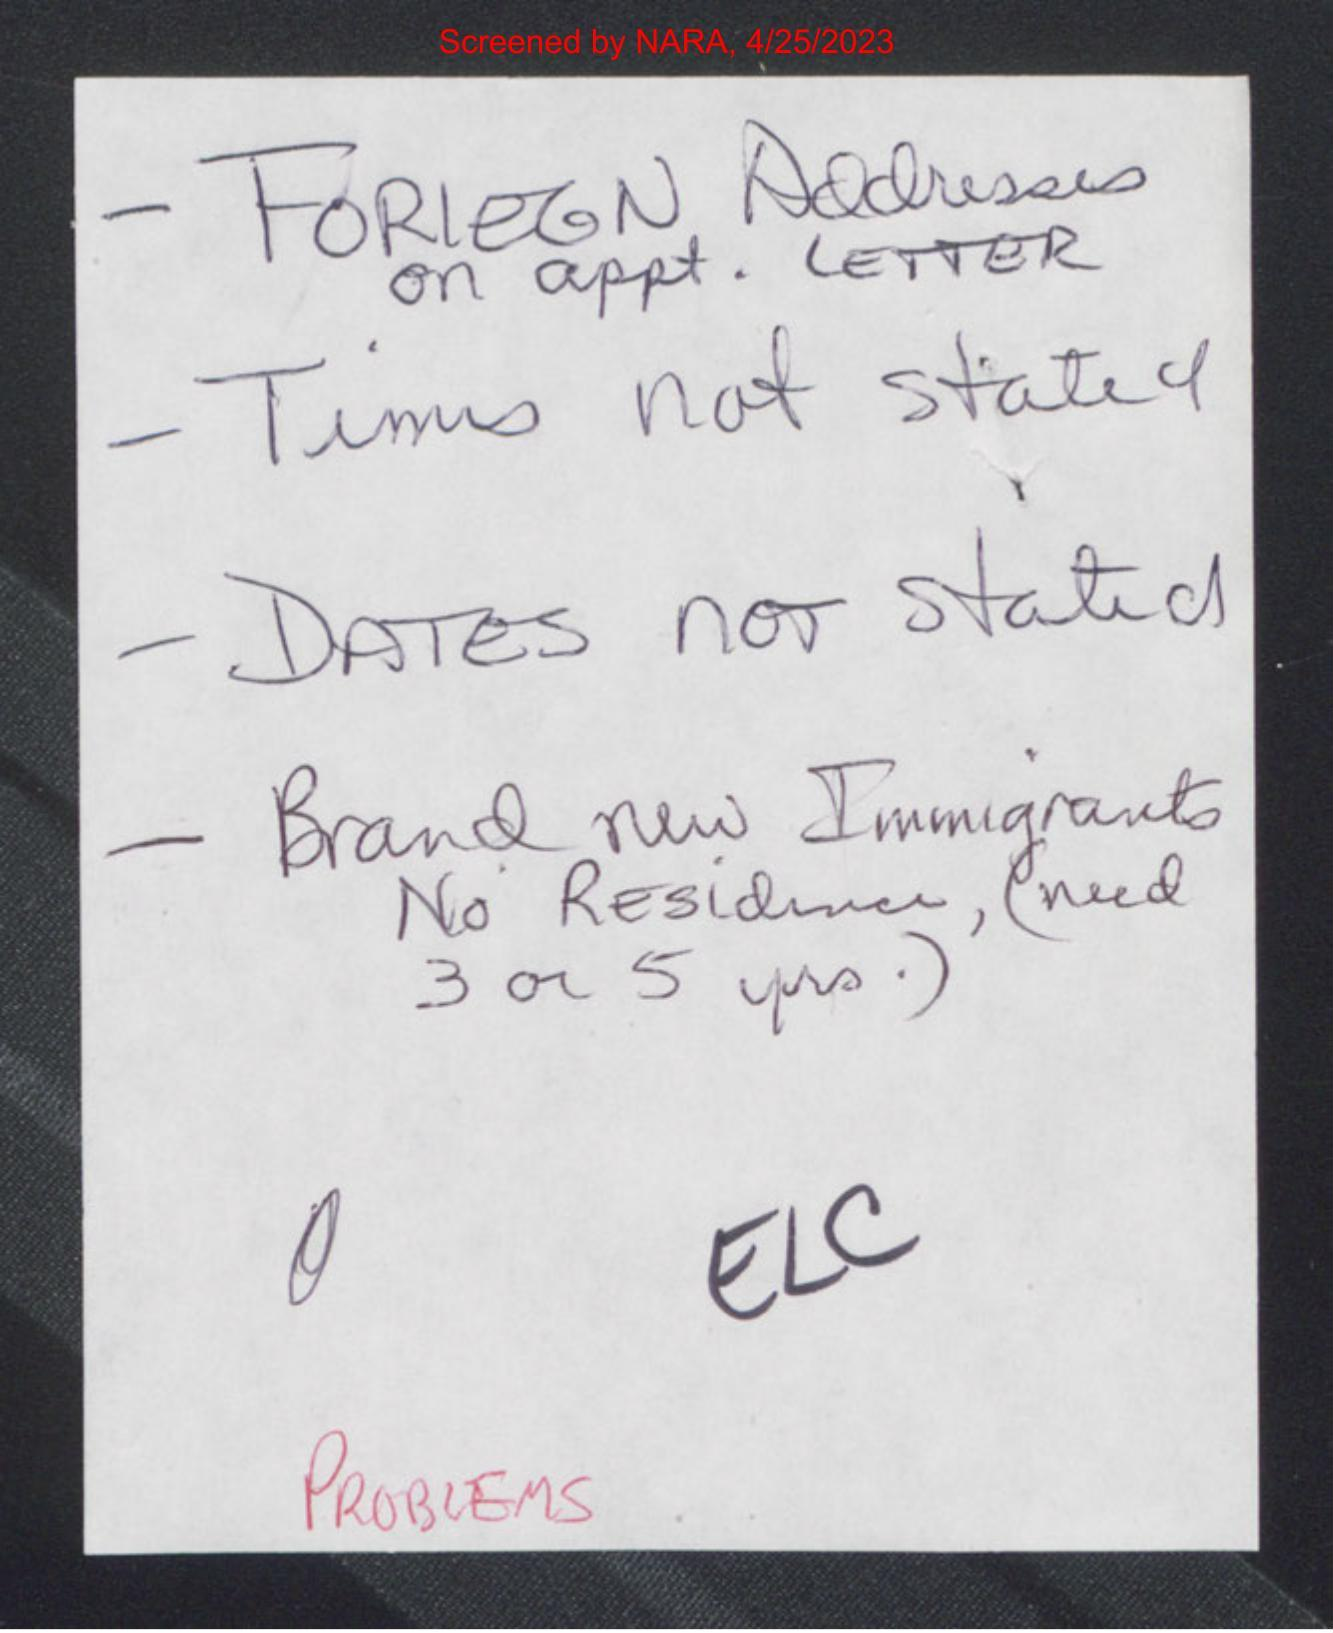 Screened by NARA, 4/25/2023
- FORIEGN Addresses
on appt. LETTER
- Times not stated
- DATES NOT stated
- Brand new Immigrants
No Residence, (need
3 or 5 yrs.)
0 ELC
PROBLEMS